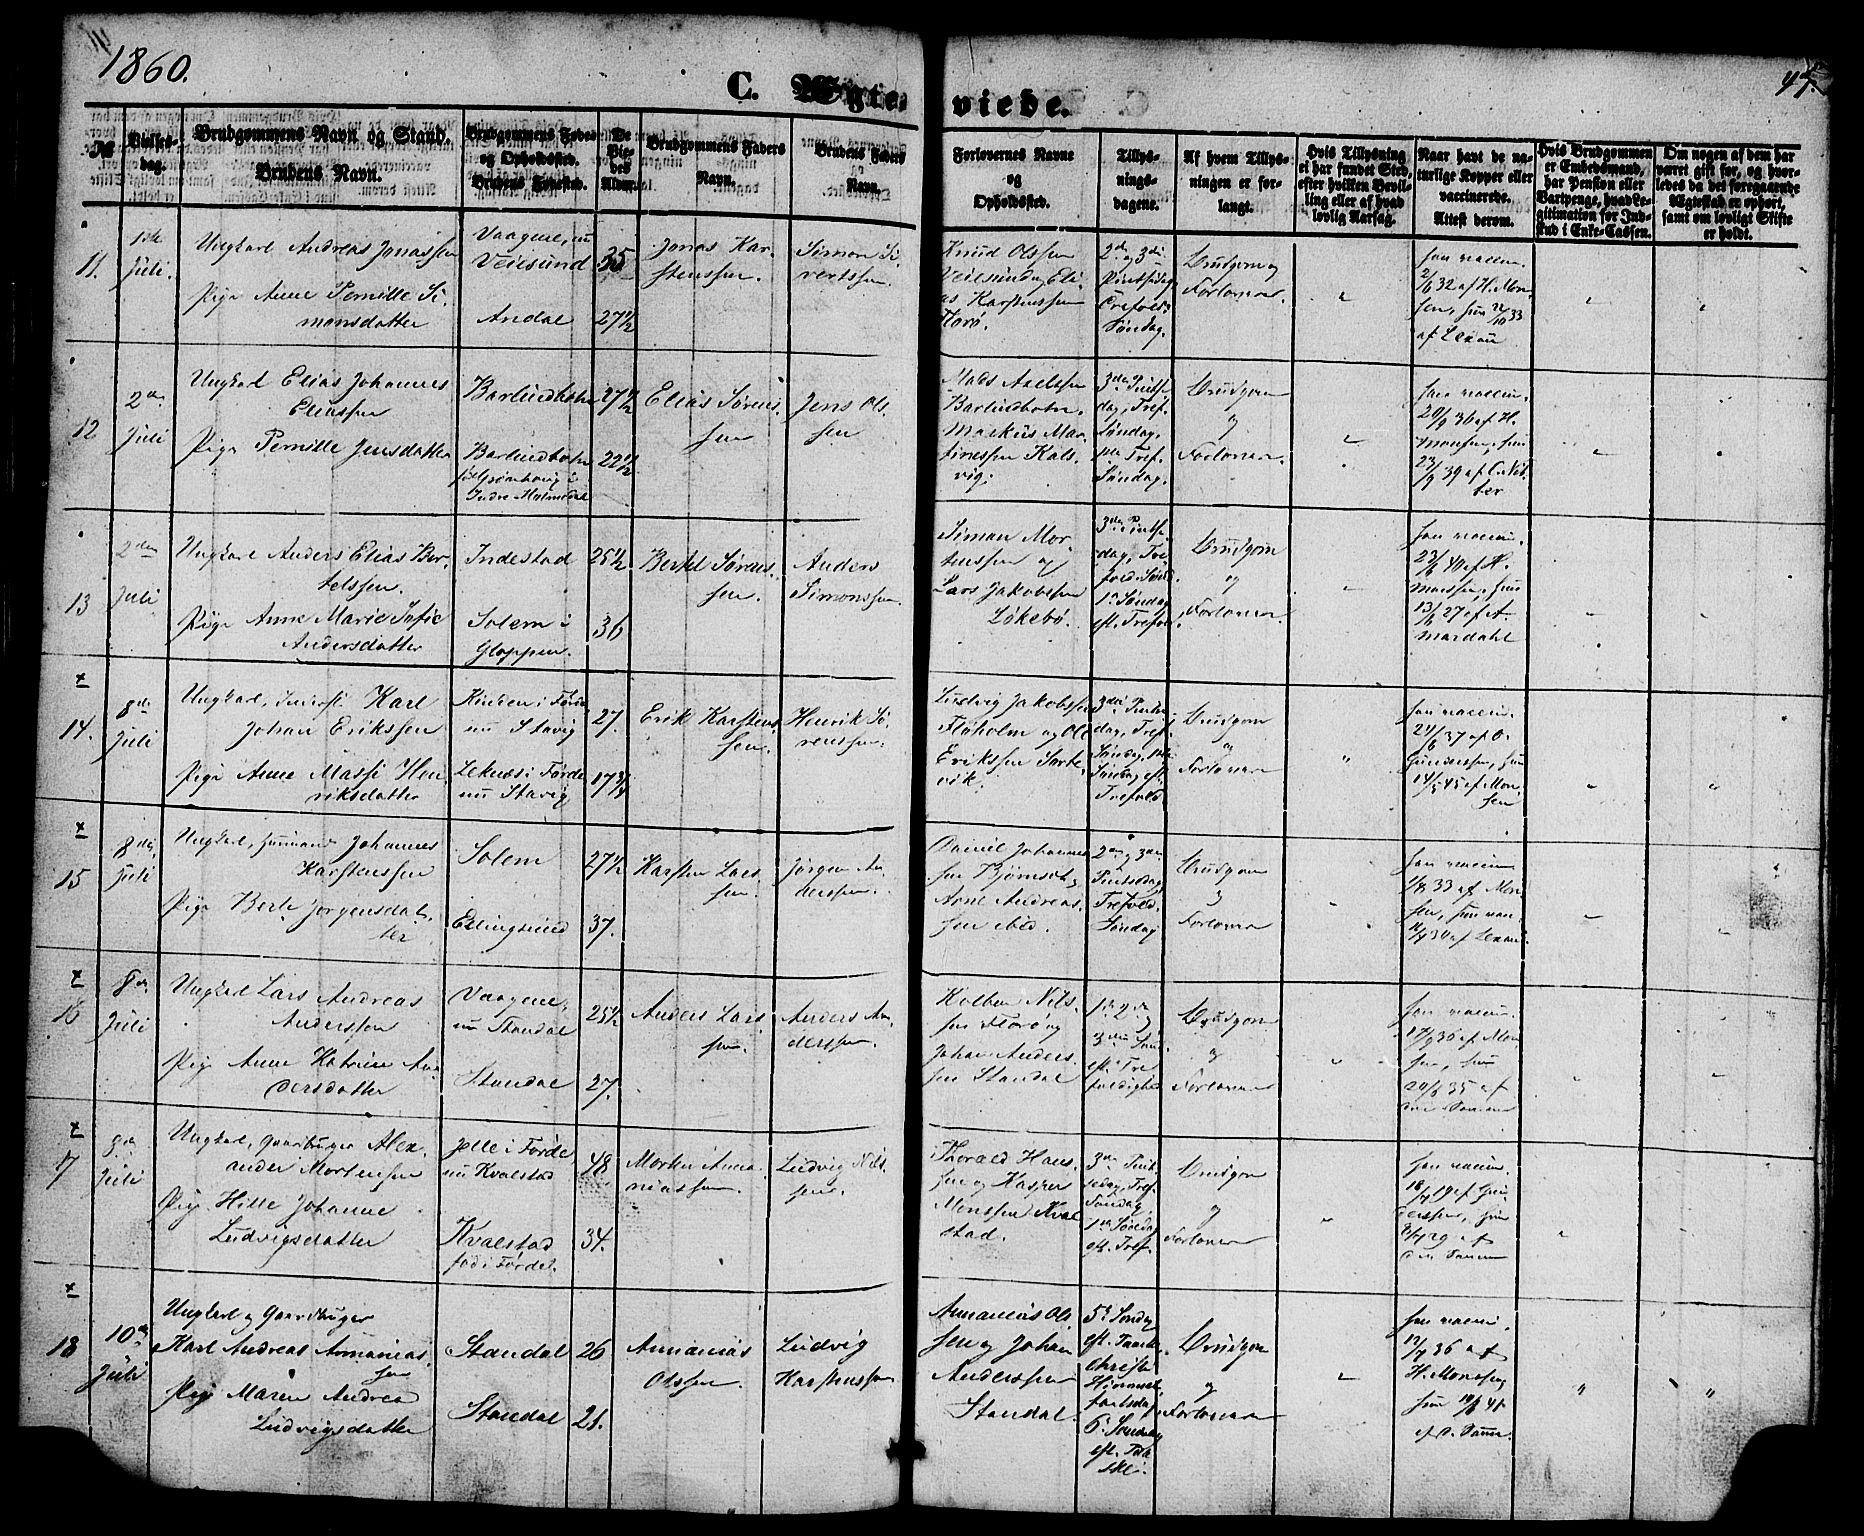 1860.
C. Ægte-
viede.
47.
№
Vielses-
dag.
Brudgommens Navn og Stand.
Brudens Navn.
Brudgommens Fødes-
og Opholdssted.
Brudens Fødested.
De
Vie-
des
Alder.
Brudgommens Faders
Navn.
Brudens Faders
Navn.
Forlovernes Navne
og
Opholdssted.
Tillys-
nings-
dagene.
Af hvem Tillys-
ningen er for-
langt.
Hvis Tillysning
ei har fundet Sted,
efter hvilken Bevil-
ling eller af hvad
lovlig Aarsag.
Naar havt de na-
turlige Kopper eller
vaccinerede.
Attest derom.
Hvis Brudgommen
er Embedsmand,
har Pension eller
Vartpenge, hvad Le-
gitimation for Ind-
skud i Enke-Cassen.
Om nogen af dem har
været gift før, og hvor-
ledes da det foregaaende
Ægtestad er ophørt,
samt om lovligt Skifte
er holdt.
11.
1ste
Juli.
Ungkarl Andreas Jonassen
Pige Anne Pernille Si-
monsdatter
Vaagene, nu
Veiesund
Andal
35
27½
Jonas Kar-
stenssen.
Simon Si-
vertssen.
Knud Olssen
Veiesund og Eli-
as Karstenssen
Florø.
2den og 3die
Pintsedag
Trefold.
Søndag.
Brudgom og
Forlovere.
han vaccin.
2/6 32 af H. Mon-
sen, hun 33
af Lexau
12
2den
Juli
Ungkarl Elias Johannes
Eliassen
Pige Pernille Jensdatter
Barlindbotn
Barlindbotn
Indre Holmedal
27½
22½
Elias Sørens-
sen
Jens Ols-
sen
Mads Axelssen
Barlindbotn.
Markus Mar-
tinessen Kals-
vig.
3die Pintse-
dag, Tref.
Søndag.
Søndag.
Brudgom
og
Forlovere.
han vaccin.
20/9 36 af H.
Monsen, hun
23/9 39 af
13
2den
Juli
Ungkarl Anders Elias Ber-
telssen.
Pige Anne Marie Sofie
Andersdatter
Indestad
Solem i
Gloppen.
25½
36
Bertel Sørens-
sen.
Anders
Simonssen.
Simon Mor-
tenssen og
Lars Jakobssen
Løkebø.
3die Pintse-
dag, Tre-
fold. Sønd.
1ste Søndag
eft. Trefold.
Brudgom
og
Forlovere.
han vaccin.
23/6 40 af H.
Monssen, hun
13/6 27 af A.
Mardahl
14.
8de
Juli
Ungkarl, Inderst Karl
Johan Erikssen
Pige Anne Massi Hen-
riksdatter
i Førde
nu Stavig
Leknes i Førde
nu Stavig
27.
17¾
Erik Karstens-
sen.
Henrik Sø-
renssen.
Ludvig Jakobssen
Floholm og Ole
Erikssen
vik.
3die Pintse-
dag, Tref.
Søndag, 1ste
Søndag eft.
Trefold.
Brudgom
og
Forlovere
han vaccin.
24/6 37 af O.
Gunderssen, hun
14/5 45 af Mon-
sen
15
8de
Juli
Ungkarl, Johannes
Karstenssen
Pige Berte Jørgensdat-
ter
Solem
Ellingsund
27½
37.
Karsten Lars-
sen.
Jørgen An-
derssen.
Daniel Johannes-
sen
Arne Andreas-
sen ibid.
2den og 3die
Pintsedag,
Trefold.
Søndag
Brudgom
og
Forlovere
han vaccin.
1/8 33 af Mon-
sen, hun vac.
30 af Lexau
16
8de
Juli
Ungkarl Lars Andreas
Anderssen
Pige Anne Katrine An-
dersdatter
Vaagene,
nu Standal
Standal
25½
27.
Anders Lars-
sen.
Anders An-
derssen.
Kolben Nils-
sen Florø og
Johan Anders-
sen Standal
1ste 2den og
3die Sønd.
eft. Tre-
foldighed
Brudgom
og
Forlovere
han vaccin.
17/9 36 af Mon-
sen, hun
20/6 35 af
17
8de
Juli
Ungkarl, Gaardbruger Alex-
ander Mortenssen
Pige Hille Johanne
Ludvigsdatter
Jelle i Førde,
nu Kvalstad
Kvalstad
fød i Førde.
48
34.
Morten Anna-
niassen.
Ludvig Nils-
sen.
Thorald Hans-
sen og Kasper
Monssen Kval-
stad.
3die Pintse-
dag, Tref.
Søndag,
1ste Søndag
eft. Tref.
Brudgom
og
Forlovere
han vaccin.
19 af Gun-
derssen, hun
29 af
18
10de
Juli
Ungkarl og Gaardbruger
Karl Andreas Annanias-
sen
Pige Maren Andrea
Ludvigsdatter
Standal
Standal
26
21.
Annanias
Olssen.
Ludvig
Karstenssen
Annanias Ols-
sen og Johan
Anderssen
Standal.
5te Søndag
eft. Paaske.
Christi
Himmel-
fartsdag
6te Søndag
eft. Paa-
ske.
Brudgom
og
Forlovere
han vaccin.
36 af
H. Monssen
hun 41